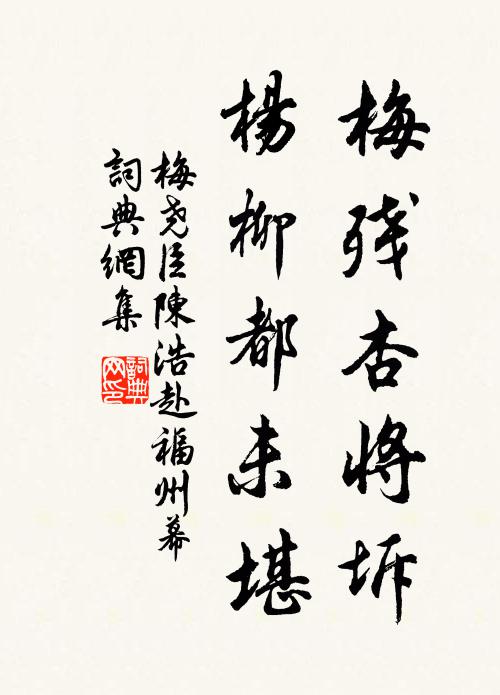 梅残杏將坼
楊柳都未堪
梅尧臣陳浩赴福州幕
詞典網集
詞典
网印